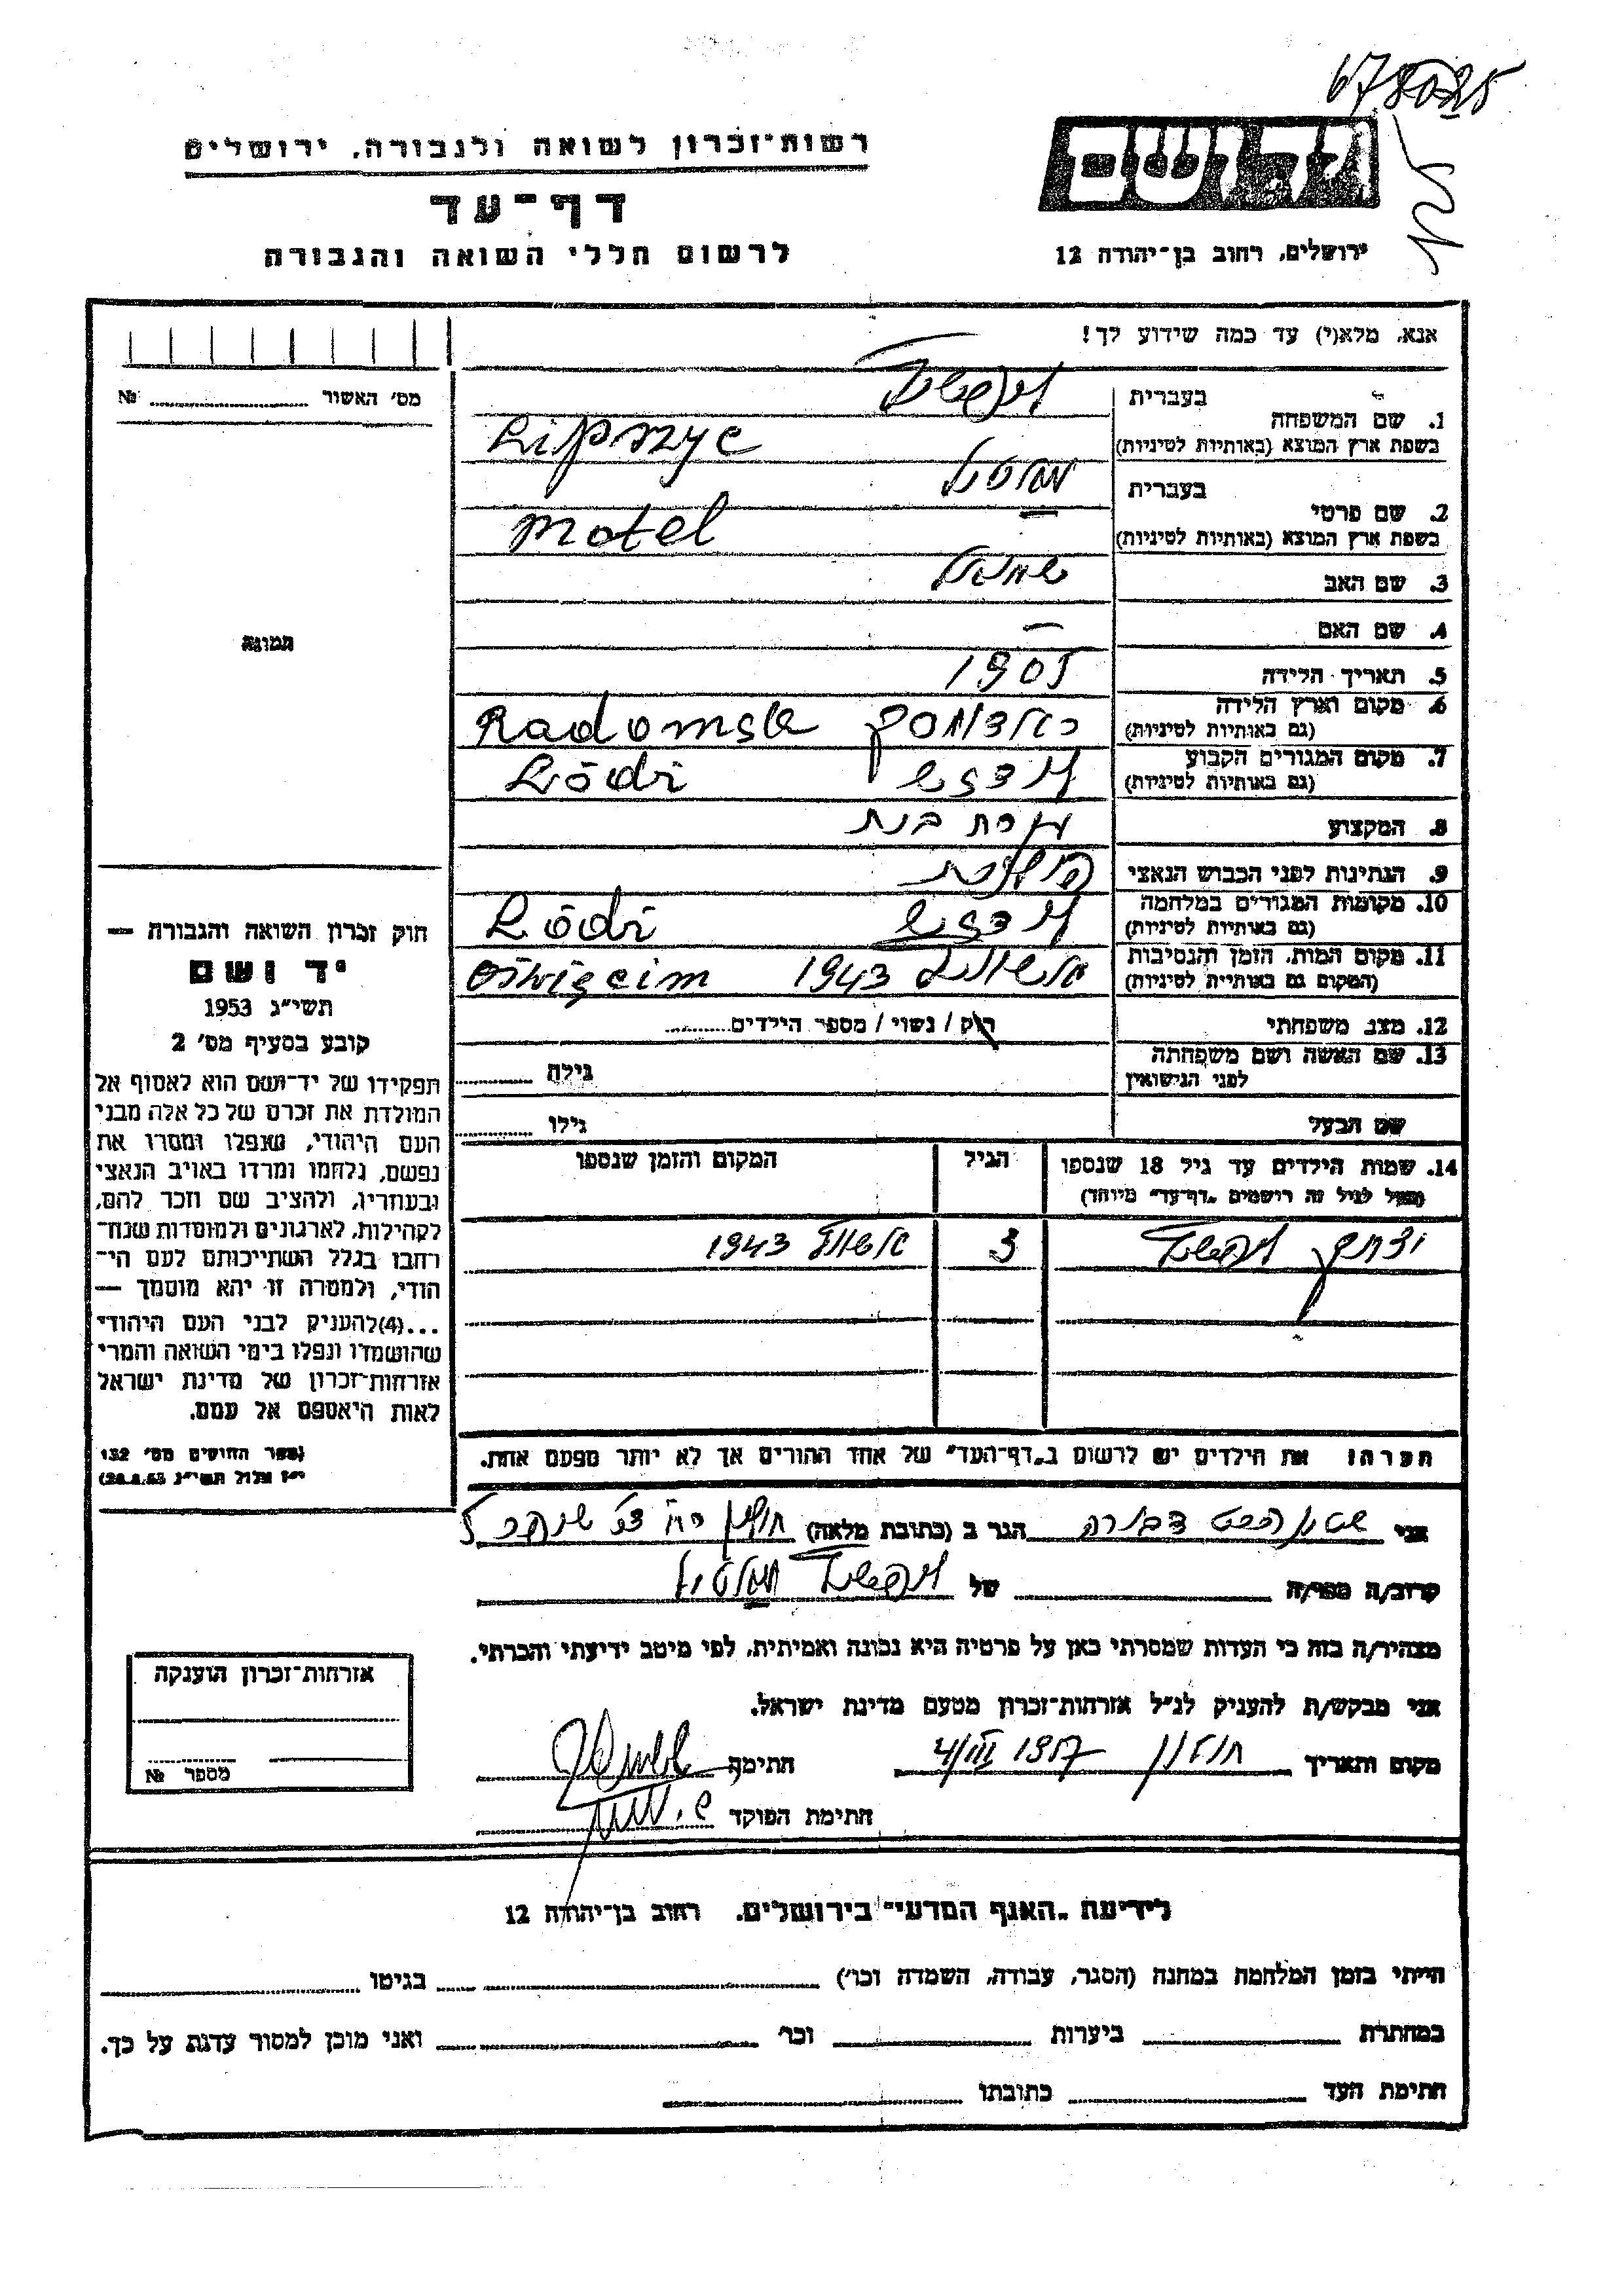 678025
רשות־זכרון לשואה ולגבורה, ירושלים
דף־עד
לרשום חללי השואה והגבורה
ירושלים, רחוב בן־יהודה 12
אנא, מלא(י) עד כמה שידוע לך!
מס׳ האשור № 
תמונה
1. שם המשפחה בעברית ליפשיץ
בשפת ארץ המוצא (באותיות לטיניות) Lipszyc
2. שם פרטי בעברית מאטעל
בשפת ארץ המוצא (באותיות לטיניות) Motel
3. שם האב שמואל
4. שם האם —
5. תאריך הלידה 1905
6. מקום וארץ הלידה
(גם באותיות לטיניות) ראדאמסק Radomsk
7. מקום המגורים הקבוע
(גם באותיות לטיניות) לודזש Lódzi
8. המקצוע
9. הנתינות לפני הכבוש הנאצי פולנית
10. מקומות המגורים במלחמה
(גם באותיות לטיניות) לודזש Lódzi
11. מקום המות, הזמן והנסיבות
(המקום גם באותיית לטיניות) 1943 Oświęcim
12. מצב משפחתי רוק / נשוי / מספר הילדים
13. שם האשה ושם משפחתה
לפני הנישואין גילה
שם הבעל גילו
14. שמות הילדים עד גיל 18 שנספו הגיל המקום והזמן שנספו
(מעל לגיל זה רושמים „דף־עד״ מיוחד)
יצחק ליפשיץ 3 1943
הערה: את הילדים יש לרשום ב„דף־העד״ של אחד ההורים אך לא יותר מפעם אחת.
חוק זכרון השואה והגבורה —
יד ושם
תשי״ג 1953
קובע בסעיף מס׳ 2
תפקידו של יד־ושם הוא לאסוף אל
המולדת את זכרם של כל אלה מבני
העם היהודי, שנפלו ומסרו את
נפשם, נלחמו ומרדו באויב הנאצי
ובעוזריו, ולהציב שם וזכר להם,
לקהילות, לארגונים ולמוסדות שנח־
רבו בגלל השתייכותם לעם הי־
הודי, ולמטרה זו יהא מוסמך —
...(4)להעניק לבני העם היהודי
שהושמדו ונפלו בימי השואה והמרי
אזרחות־זכרון של מדינת ישראל
לאות היאספם אל עמם.
(ספר החוקים מס׳ 132
י״ז אלול תשי״ג 28.8.53)
אני דבורה הגר ב (כתובת מלאה) חולון
קרוב/ה מפר/ה של ליפשיץ מאטעל
מצהיר/ה בזה כי העדות שמסרתי כאן על פרטיה היא נכונה ואמיתית, לפי מיטב ידיעתי והכרתי.
אני מבקש/ת להעניק לנ״ל אזרחות־זכרון מטעם מדינת ישראל.
מקום ותאריך חולון 4/III 1957 חתימה
חתימת הפוקד
אזרחות־זכרון הוענקה
מספר №
לידיעת „האגף המדעי״ בירושלים, רחוב בן־יהודה 12
הייתי בזמן המלחמה במחנה (הסגר, עבודה, השמדה וכו׳) בגיטו
במחתרת ביערות וכו׳ ואני מוכן למסור עדות על כך.
חתימת העד כתובתו